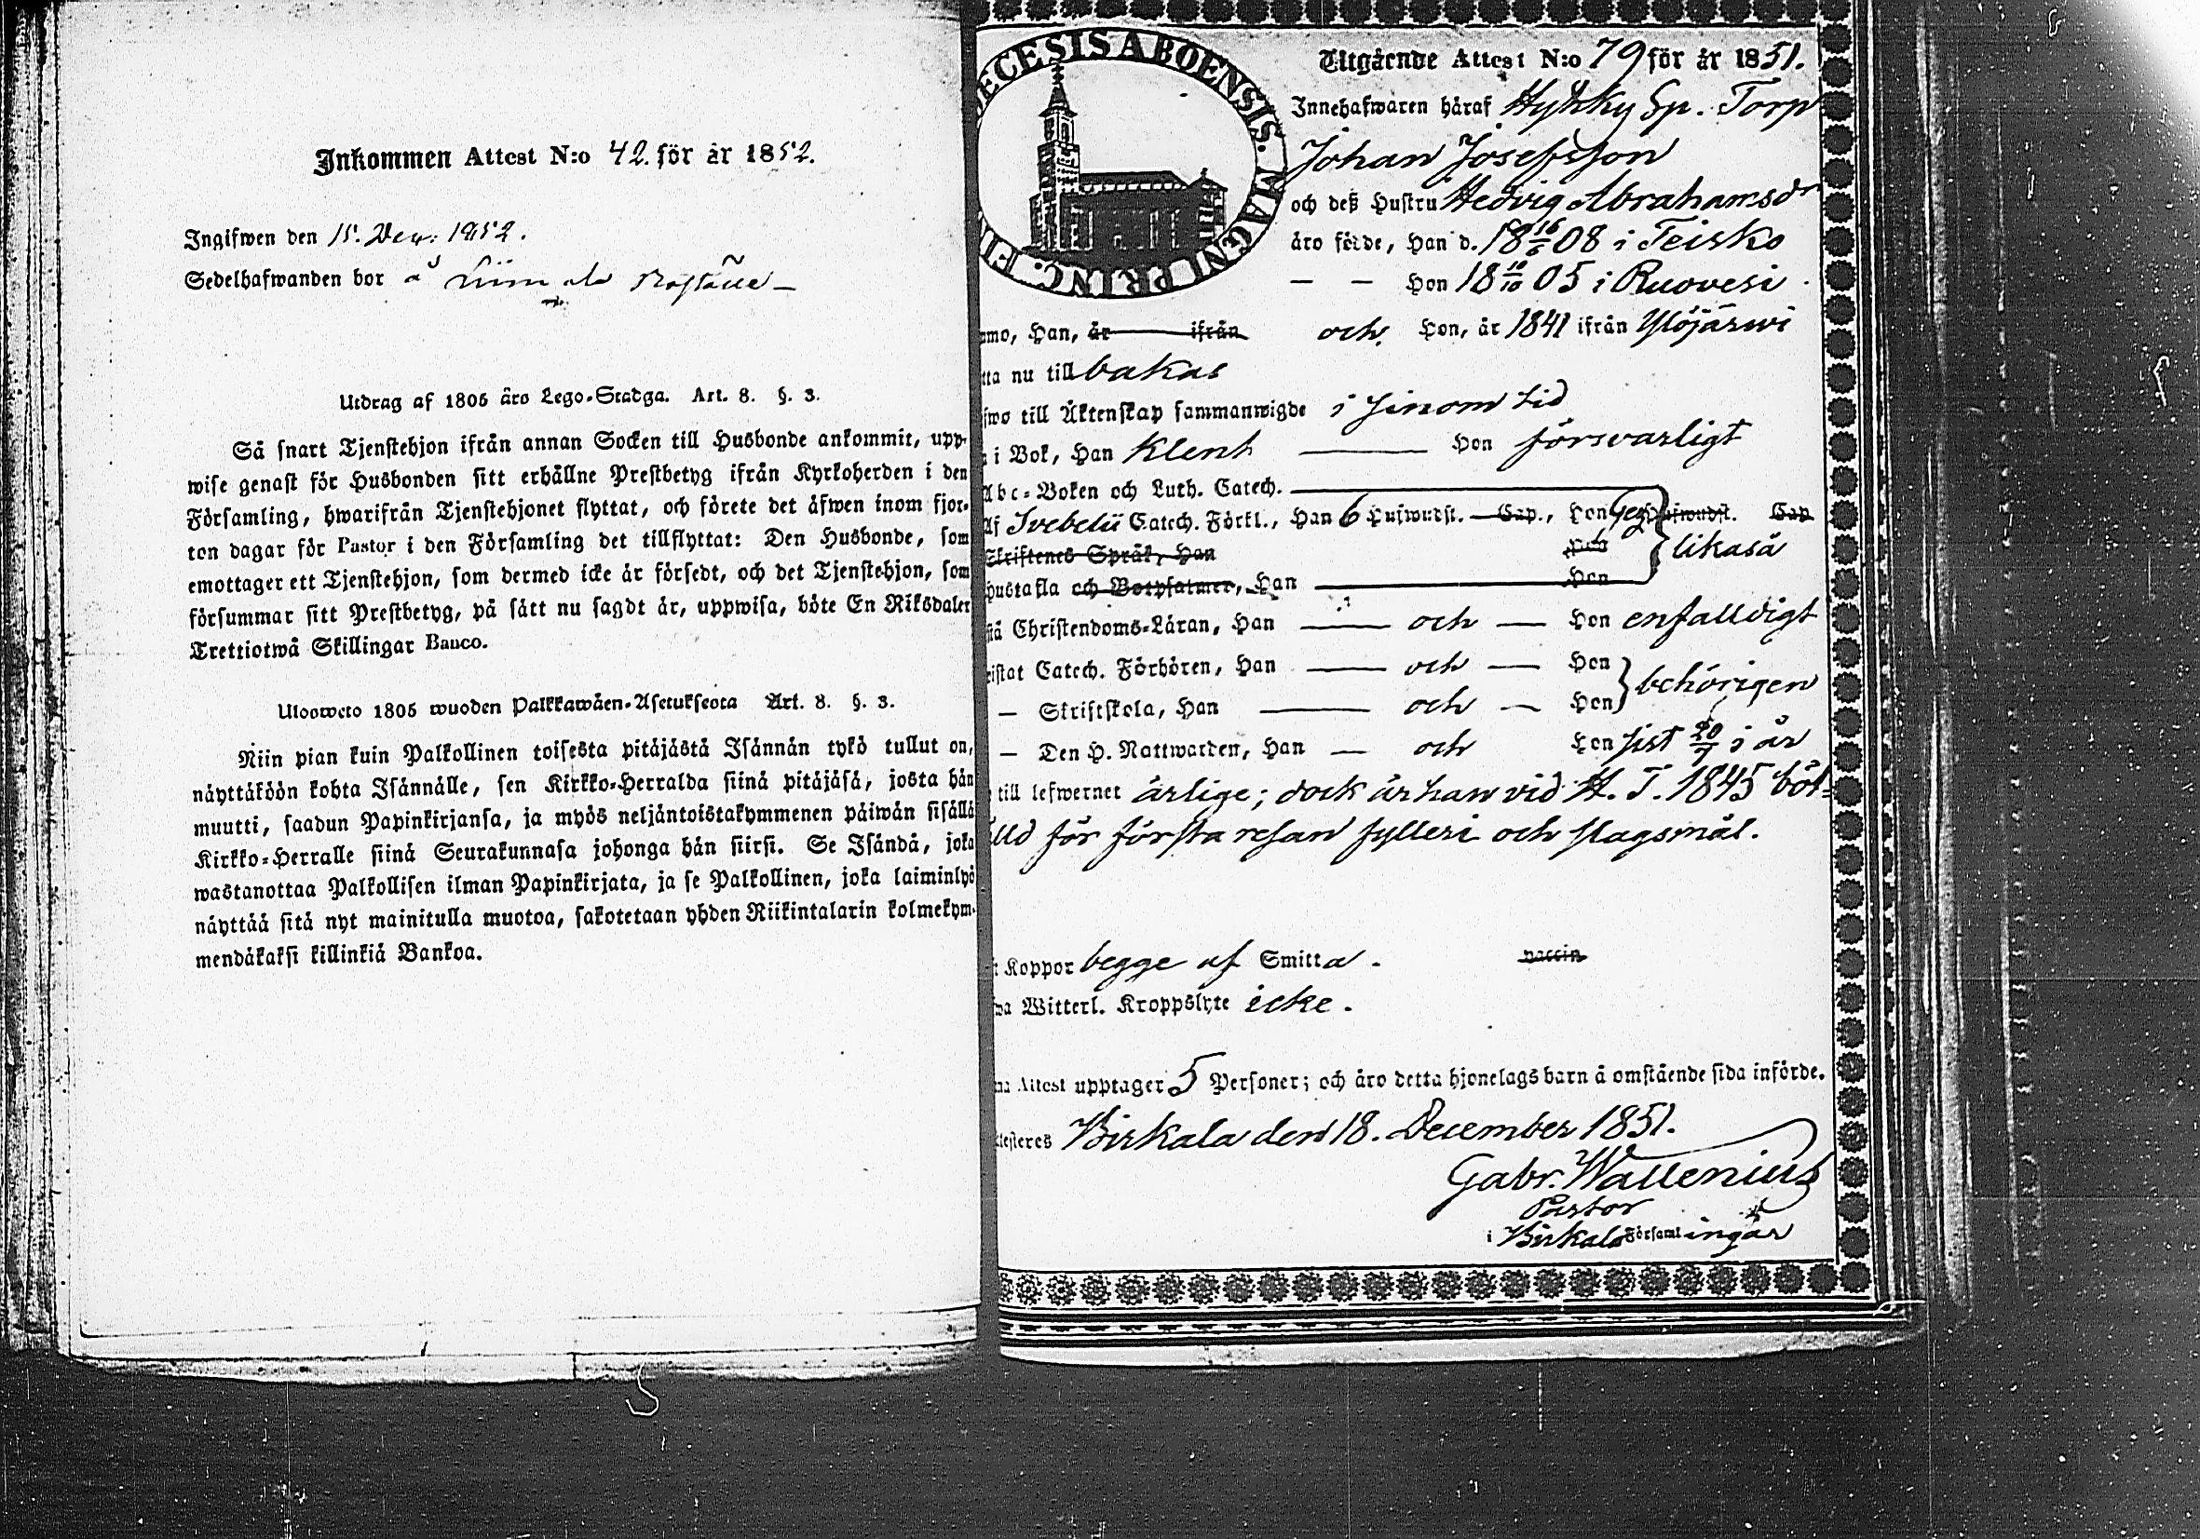 Inkommen Attest N:o 42. för år 1852.
Ingifwen den 15. Dec: 1852.
Sedelhafwanden bor å
Utdrag af 1805 års Lego-Stadga. Art. 8. §. 3.
Så snart Tjenstehjon ifrån annan Socken till Husbonde ankommit, upp-
wise genast för Husbonden sitt erhållne Prestbetyg ifrån Kyrkoherden i den
Församling, hwarifrån Tjenstehjonet flyttat, och förete det äfwen inom fjor-
ton dagar för Pastor i den Församling det tillflyttat: Den Husbonde, som
emottager ett Tjenstehjon, som dermed icke är försedt, och det Tjenstehjon, som
försummar sitt Prestbetyg, på sätt nu sagdt är, uppwisa, böte En Riksdaler
Trettiotwå Skillingar Banco.
Ulosweto 1805 wuoden Palkkawäen-Asetuksesta Art. 8. §. 3.
Niin pian kuin Palkollinen toisesta pitäjästä Isännän tykö tullut on,
näyttäköön kohta Isännälle, sen Kirkko-Herralda siinä pitäjäsä, josta hän
muutti, saadun Papinkirjansa, ja myös neljäntoistakymmenen päiwän sisällä
Kirkko-Herralle siinä Seurakunnasa johonga hän siirsi. Se Isändä, joka
wastanottaa Palkollisen ilman Papinkirjata, ja se Palkollinen, joka laiminlyö
näyttää sitä nyt mainitulla muotoa, sakotetaan yhden Riikintalarin kolmekym-
mendäkaksi killinkiä Bankoa.
ECESIS ABOENSIS. MAGNI PRINC. FIN
Utgående Attest N:o 79 för år 1851.
Innehafwaren häraf Hyhky Sp. Torp
Johan Josefsson
och deß Hustru Hedvig Abrahamsdr
äro födde, Han d. 18 16/6 08 i Teisko
— — Hon 18 10/10 05 i Ruovesi
mo, Han, år ifrån och Hon, år 1841 ifrån Ylöjärwi
tta nu till bakas
fwo till Äktenskap sammanwigde i sinom tid
i Bok, Han klent — Hon försvarligt
Abc-Boken och Luth. Catech. —
Af Svebelii Catech. Förkl., Han 6 Hufwudst. Cap., Hon Hufwudst. Cap
Skriftenes Språk, Han Hon likaså
Hustafla och Botpsalmer, Han — Hon
stå Christendoms-Läran, Han — och — Hon enfalldigt
istat Catech. Förhören, Han — och — Hon behörigen
— Skriftskola, Han — och — Hon
— Den H. Nattwarden, Han — och Hon sist 20/7 i år
till lefwernet ärlige; dock är han vid H. T. 1845 böt-
lld för första resan fylleri och slagsmål.
t Koppor begge af Smitta. vaccin
wa Witterl. Kroppslyte icke.
na Attest upptager 5 Personer; och äro detta hjonelags barn å omstående sida införde.
testeres Birkala den 18. December 1851.
Gabr. Wallenius
Pastor
i Birkala Församlingar